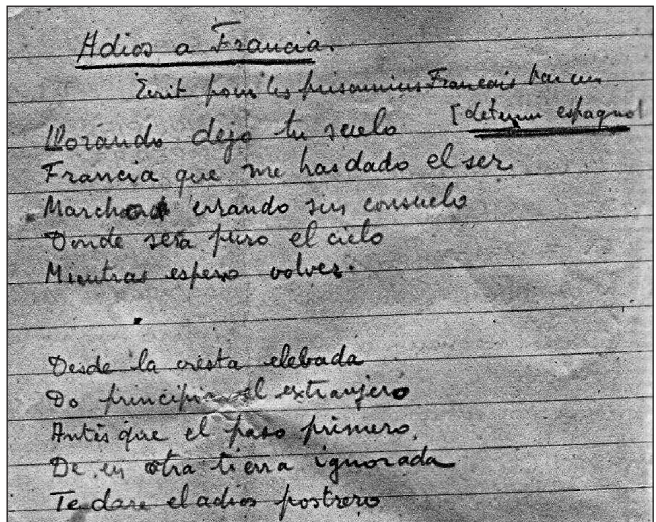 Adios a Francia.
Ecrit pour les prisonniers Francais par un
[détenu espagnol
Llorando dejo tu suelo
Francia que me has dado el ser
Marchará errando sin consuelo
Donde será puro el cielo
Mientras espero volver.
Desde la cresta elebada
Do principia el extranjero
Antes que el paso primero,
De en otra tierra ignorada
Te dare el adios postrero